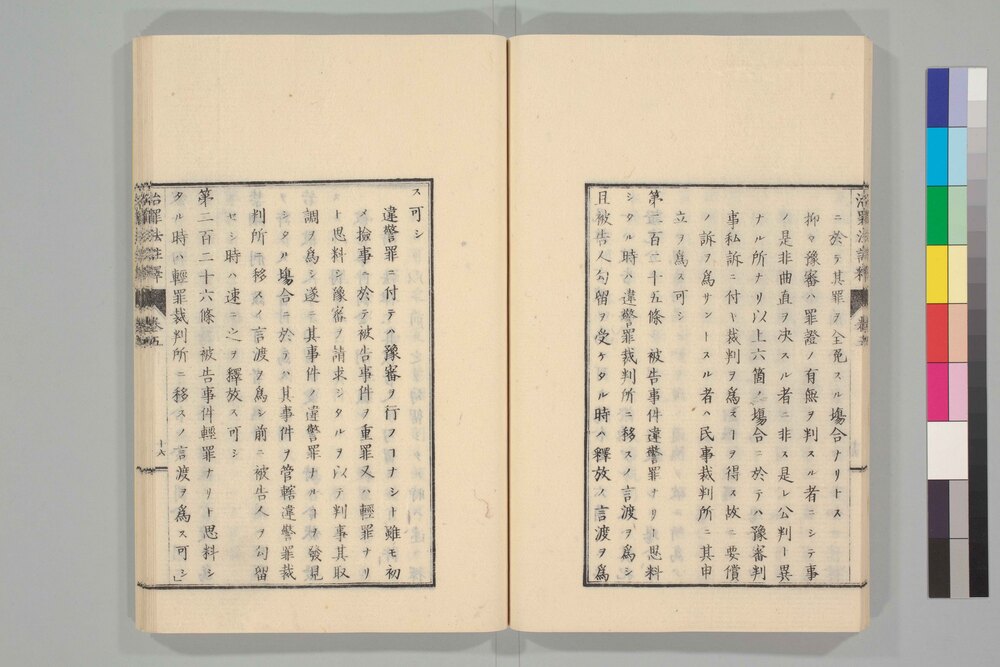 ニ於テ其罪ヲ全免スル塲合ナリトス
抑々豫審ハ罪證ノ有無ヲ判スル者ニシテ事
ノ是非曲直ヲ决スル者ニ非ス是レ公判ト異
ナル所ナリ以上六箇ノ塲合ニ於テハ豫審判
事私訴ニ付キ裁判ヲ爲スヿヲ得ス故ニ要償
ノ訴ヲ爲サントスル者ハ民事裁判所ニ其申
立ヲ爲ス可シ
第二百二十五條 被告事件違警罪ナリト思料
シタル時ハ違警罪裁判所ニ移スノ言渡ヲ爲シ
且被告人勾留ヲ受ケタル時ハ釋放ス言渡ヲ爲
ス可シ
違警罪ニ付テハ豫審ヲ行フヿナシト雖モ初
メ撿事ニ於テ被告事件ヲ重罪又ハ輕罪ナリ
ト思料シ豫審ヲ請求シタルヲ以テ判事其取
調ヲ爲シ遂ニ其事件ノ違警罪ナルヿヲ發見
シタル塲合ニ於テハ其事件ヲ管轄違警罪裁
判所ニ移スノ言渡ヲ爲シ前ニ被告人ヲ勾留
セシ時ハ速ニ之ヲ釋放ス可シ
第二百二十六條 被告事件輕罪ナリト思料シ
タル時ハ輕罪裁判所ニ移スノ言渡ヲ爲ス可シ
治罪法註釋
卷五
十六